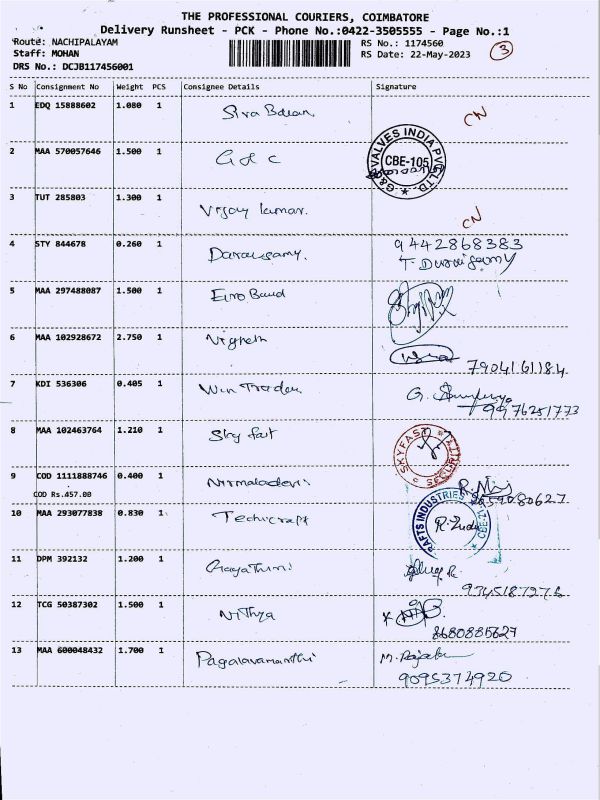 THE PROFESSIONAL COURIERS, COIMBATORE
Delivery Runsheet - PCK - Phone No.:0422-3505555 - Page No.:1
Route: NACHIPALAYAM
RS No.: 1174560
3
Staff: MOHAN
RS Date: 22-May-2023
DRS No.: DCJB117456001
S No Consignment No Weight PCS Consignee Details Signature
1 EDQ 15888602 1.080 1 Siva CN
2 MAA 570057646 1.500 1 G & C G&C VALVES INDIA PVT. LTD. CBE-105
3 TUT 285803 1.300 1 Vijay kumar. CN
4 STY 844678 0.260 1 Daraisamy. 9442868383
T. Duraisamy
5 MAA 297488087 1.500 1 Euro Band
6 MAA 102928672 2.750 1 Vignesh
7904161184
7 KDI 536306 0.405 1 Win Traders G.
9976251773
8 MAA 102463764 1.210 1 Sky fast SKYFAST SECURITY
9 COD 1111888746 0.400 1 Nirmaladevi
COD Rs.457.00
10 MAA 293077838 0.830 1 Techcraft CRAFTS INDUSTRIES CBE-21
11 DPM 392132 1.200 1 Gayathiri
12 TCG 50387302 1.500 1 Nithya
8680885627
13 MAA 600048432 1.700 1 Pagalavamanthi M. Raja
9095374920